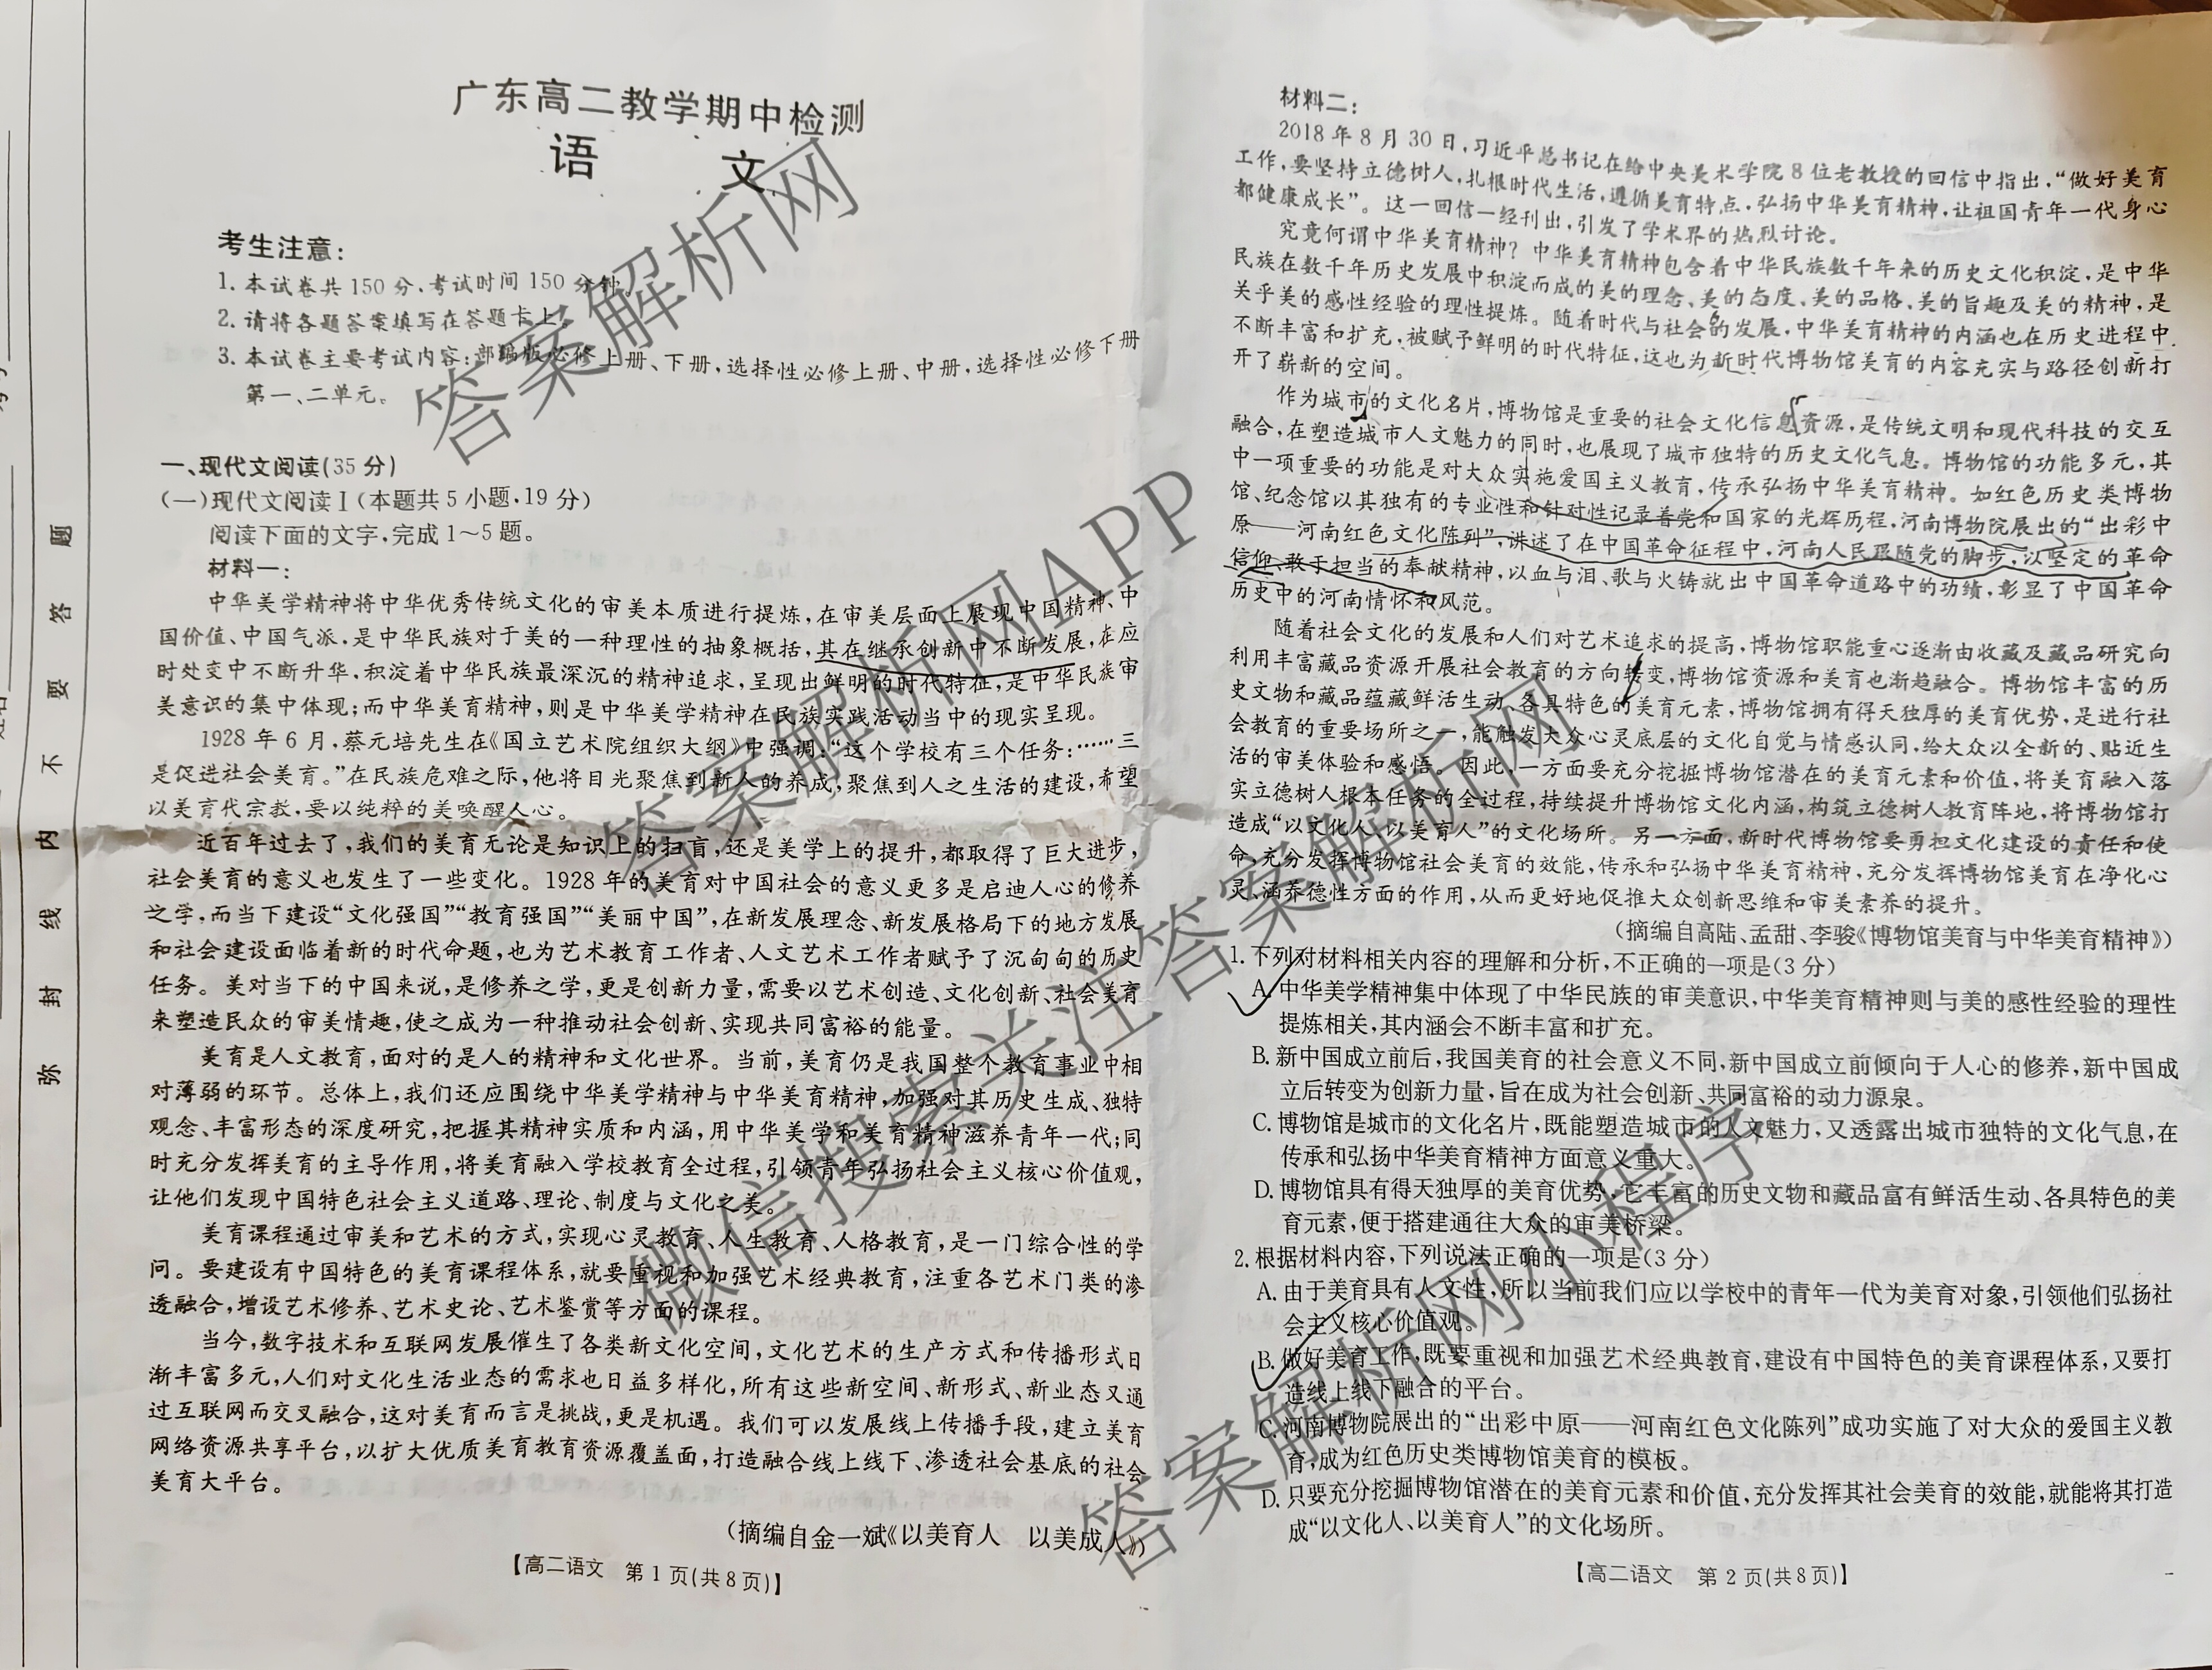 广东高二教学期中检测
语 文
考生注意：
1. 本试卷共 150 分，考试时间 150 分钟。
2. 请将各题答案填写在答题卡上。
3. 本试卷主要考试内容：部编版必修上册、下册，选择性必修上册、中册，选择性必修下册
第一、二单元。
一、现代文阅读(35 分)
(一)现代文阅读Ⅰ(本题共 5 小题，19 分)
阅读下面的文字，完成 1～5 题。
材料一：
中华美学精神将中华优秀传统文化的审美本质进行提炼，在审美层面上展现中国精神、中
国价值、中国气派，是中华民族对于美的一种理性的抽象概括，其在继承创新中不断发展，在应
时处变中不断升华，积淀着中华民族最深沉的精神追求，呈现出鲜明的时代特征，是中华民族审
美意识的集中体现；而中华美育精神，则是中华美学精神在民族实践活动当中的现实呈现。
1928 年 6 月，蔡元培先生在《国立艺术院组织大纲》中强调：“这个学校有三个任务：……三
是促进社会美育。”在民族危难之际，他将目光聚焦到新人的养成，聚焦到人之生活的建设，希望
以美育代宗教，要以纯粹的美唤醒人心。
近百年过去了，我们的美育无论是知识上的扫盲，还是美学上的提升，都取得了巨大进步，
社会美育的意义也发生了一些变化。1928 年的美育对中国社会的意义更多是启迪人心的修养
之学，而当下建设“文化强国”“教育强国”“美丽中国”，在新发展理念、新发展格局下的地方发展
和社会建设面临着新的时代命题，也为艺术教育工作者、人文艺术工作者赋予了沉甸甸的历史
任务。美对当下的中国来说，是修养之学，更是创新力量，需要以艺术创造、文化创新、社会美育
来塑造民众的审美情趣，使之成为一种推动社会创新、实现共同富裕的能量。
美育是人文教育，面对的是人的精神和文化世界。当前，美育仍是我国整个教育事业中相
对薄弱的环节。总体上，我们还应围绕中华美学精神与中华美育精神，加强对其历史生成、独特
观念、丰富形态的深度研究，把握其精神实质和内涵，用中华美学和美育精神滋养青年一代；同
时充分发挥美育的主导作用，将美育融入学校教育全过程，引领青年弘扬社会主义核心价值观，
让他们发现中国特色社会主义道路、理论、制度与文化之美。
美育课程通过审美和艺术的方式，实现心灵教育、人生教育、人格教育，是一门综合性的学
问。要建设有中国特色的美育课程体系，就要重视和加强艺术经典教育，注重各艺术门类的渗
透融合，增设艺术修养、艺术史论、艺术鉴赏等方面的课程。
当今，数字技术和互联网发展催生了各类新文化空间，文化艺术的生产方式和传播形式日
渐丰富多元，人们对文化生活业态的需求也日益多样化，所有这些新空间、新形式、新业态又通
过互联网而交叉融合，这对美育而言是挑战，更是机遇。我们可以发展线上传播手段，建立美育
网络资源共享平台，以扩大优质美育教育资源覆盖面，打造融合线上线下、渗透社会基底的社会
美育大平台。
(摘编自金一斌《以美育人 以美成人》)
【高二语文 第 1 页(共 8 页)】
材料二：
2018 年 8 月 30 日，习近平总书记在给中央美术学院 8 位老教授的回信中指出，“做好美育
工作，要坚持立德树人，扎根时代生活，遵循美育特点，弘扬中华美育精神，让祖国青年一代身心
都健康成长”。这一回信一经刊出，引发了学术界的热烈讨论。
究竟何谓中华美育精神？中华美育精神包含着中华民族数千年来的历史文化积淀，是中华
民族在数千年历史发展中积淀而成的美的理念、美的态度、美的品格、美的旨趣及美的精神，是
关乎美的感性经验的理性提炼。随着时代与社会的发展，中华美育精神的内涵也在历史进程中
不断丰富和扩充，被赋予鲜明的时代特征，这也为新时代博物馆美育的内容充实与路径创新打
开了崭新的空间。
作为城市的文化名片，博物馆是重要的社会文化信息资源，是传统文明和现代科技的交互
融合，在塑造城市人文魅力的同时，也展现了城市独特的历史文化气息。博物馆的功能多元，其
中一项重要的功能是对大众实施爱国主义教育，传承弘扬中华美育精神。如红色历史类博物
馆、纪念馆以其独有的专业性和针对性记录着党和国家的光辉历程，河南博物院展出的“出彩中
原——河南红色文化陈列”，讲述了在中国革命征程中，河南人民跟随党的脚步，以坚定的革命
信仰、敢于担当的奉献精神，以血与泪、歌与火铸就出中国革命道路中的功绩，彰显了中国革命
历史中的河南情怀和风范。
随着社会文化的发展和人们对艺术追求的提高，博物馆职能重心逐渐由收藏及藏品研究向
利用丰富藏品资源开展社会教育的方向转变，博物馆资源和美育也渐趋融合。博物馆丰富的历
史文物和藏品蕴藏鲜活生动、各具特色的美育元素，博物馆拥有得天独厚的美育优势，是进行社
会教育的重要场所之一，能触发大众心灵底层的文化自觉与情感认同，给大众以全新的、贴近生
活的审美体验和感悟。因此，一方面要充分挖掘博物馆潜在的美育元素和价值，将美育融入落
实立德树人根本任务的全过程，持续提升博物馆文化内涵，构筑立德树人教育阵地，将博物馆打
造成“以文化人、以美育人”的文化场所。另一方面，新时代博物馆要勇担文化建设的责任和使
命，充分发挥博物馆社会美育的效能，传承和弘扬中华美育精神，充分发挥博物馆美育在净化心
灵、涵养德性方面的作用，从而更好地促推大众创新思维和审美素养的提升。
(摘编自高陆、孟甜、李骏《博物馆美育与中华美育精神》)
1. 下列对材料相关内容的理解和分析，不正确的一项是(3 分)
A. 中华美学精神集中体现了中华民族的审美意识，中华美育精神则与美的感性经验的理性
提炼相关，其内涵会不断丰富和扩充。
B. 新中国成立前后，我国美育的社会意义不同，新中国成立前倾向于人心的修养，新中国成
立后转变为创新力量，旨在成为社会创新、共同富裕的动力源泉。
C. 博物馆是城市的文化名片，既能塑造城市的人文魅力，又透露出城市独特的文化气息，在
传承和弘扬中华美育精神方面意义重大。
D. 博物馆具有得天独厚的美育优势，它丰富的历史文物和藏品富有鲜活生动、各具特色的美
育元素，便于搭建通往大众的审美桥梁。
2. 根据材料内容，下列说法正确的一项是(3 分)
A. 由于美育具有人文性，所以当前我们应以学校中的青年一代为美育对象，引领他们弘扬社
会主义核心价值观。
B. 做好美育工作，既要重视和加强艺术经典教育，建设有中国特色的美育课程体系，又要打
造线上线下融合的平台。
C. 河南博物院展出的“出彩中原——河南红色文化陈列”成功实施了对大众的爱国主义教
育，成为红色历史类博物馆美育的模板。
D. 只要充分挖掘博物馆潜在的美育元素和价值，充分发挥其社会美育的效能，就能将其打造
成“以文化人、以美育人”的文化场所。
【高二语文 第 2 页(共 8 页)】
弥 封 线 内 不 要 答 题
答案解析网
答案解析网APP
微信搜索关注答案解析网
答案解析网小程序